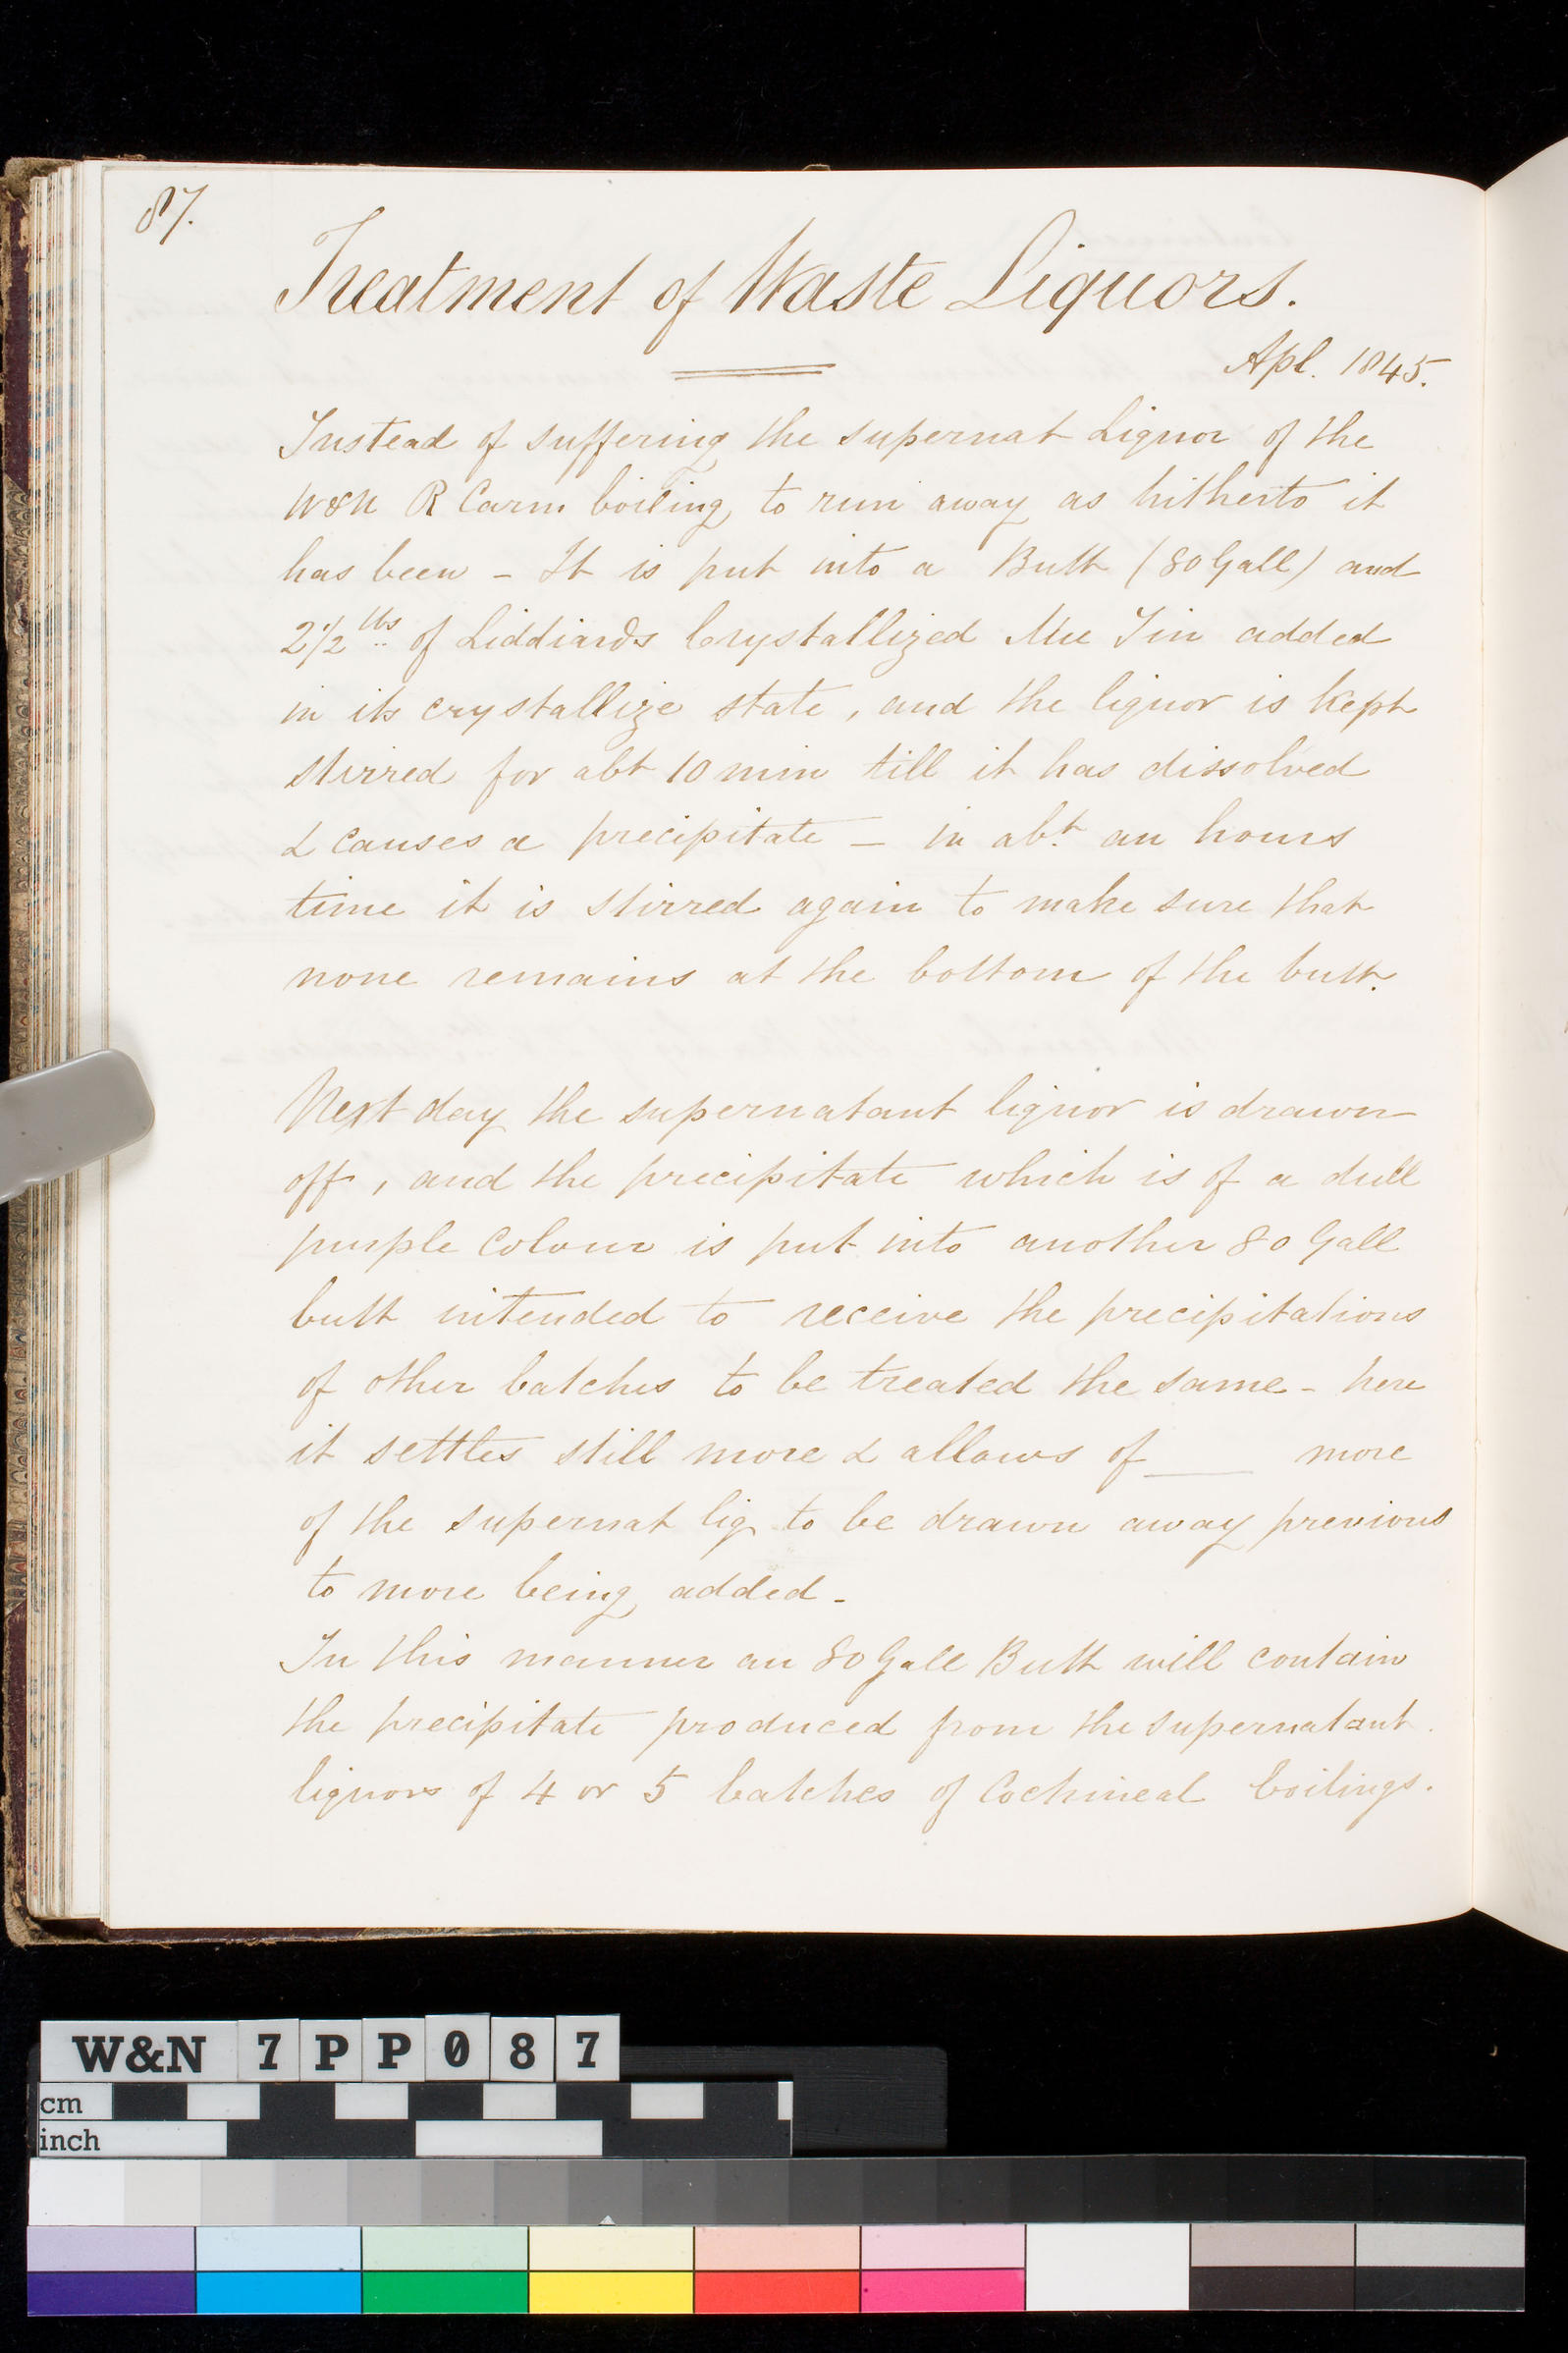 87.
Treatment of Waste Liquors.
Apl. 1845.
Instead of suffering the supernat Liquor of the
W&N R Carm boiling to run away as hitherto it
has been - It is put into a Butt (80 Gall) and
2 1/2 lbs of Liddiards Crystallized Mu Tin added
in its crystallize state, and the liquor is kept
stirred for abt 10 min till it has dissolved
& causes a precipitate - in abt. an hours
time it is stirred again to make sure that
none remains at the bottom of the butt.
Next day the supernatant liquor is drawn
off, and the precipitate which is of a dull
purple colour is put into another 80 Gall
butt intended to receive the precipitations
of other batches to be treated the same - here
it settles still more & allows of ___ more
of the supernat liq to be drawn away previous
to more being added -
In this manner an 80 Gall Butt will contain
the precipitate produced from the supernatant
liquors of 4 or 5 batches of Cochineal boilings.
W&N 7PP087
cm
inch